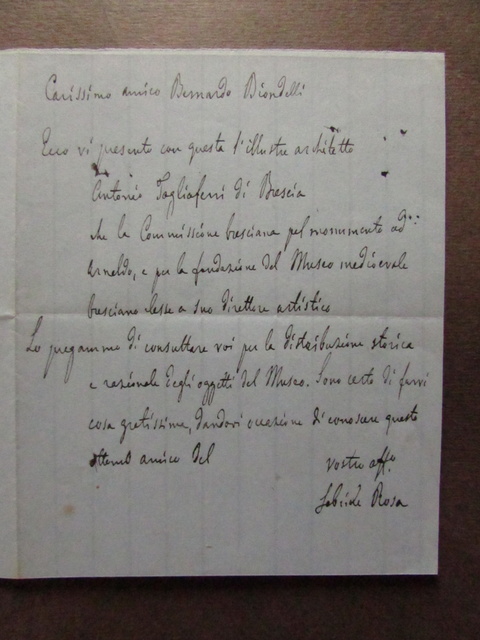 Carissimo amico Bernardo Biondelli
Ecco vi presento con questa l'illustre architetto
Antonio Tagliaferri di Brescia
che la Commissione bresciana pel monumento ad
Arnaldo, e per la fondazione del Museo medioevale
bresciano elesse a suo direttore artistico
Lo pregammo di consultare voi per la distribuzione storica
e razionale degli oggetti del Museo. Sono certo di farvi
cosa gratissima, dandovi occasione di conoscere questo
ottimo amico del
vostro aff.
Gabriele Rosa